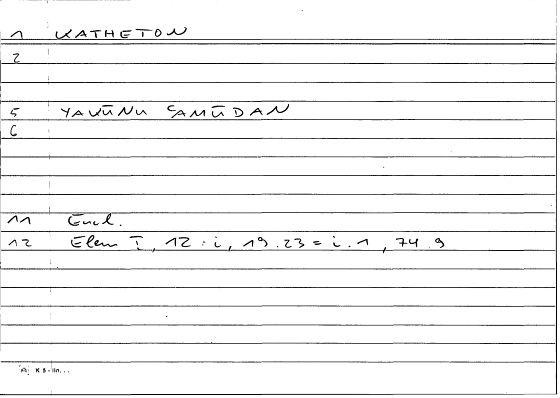 1 KATHETON
2
5 YAKŪNU ʿAMŪDAN
6
11 Eucl.
12 Elem I, 12 : i, 19.23 = i.1, 74.9
A K S - lln...